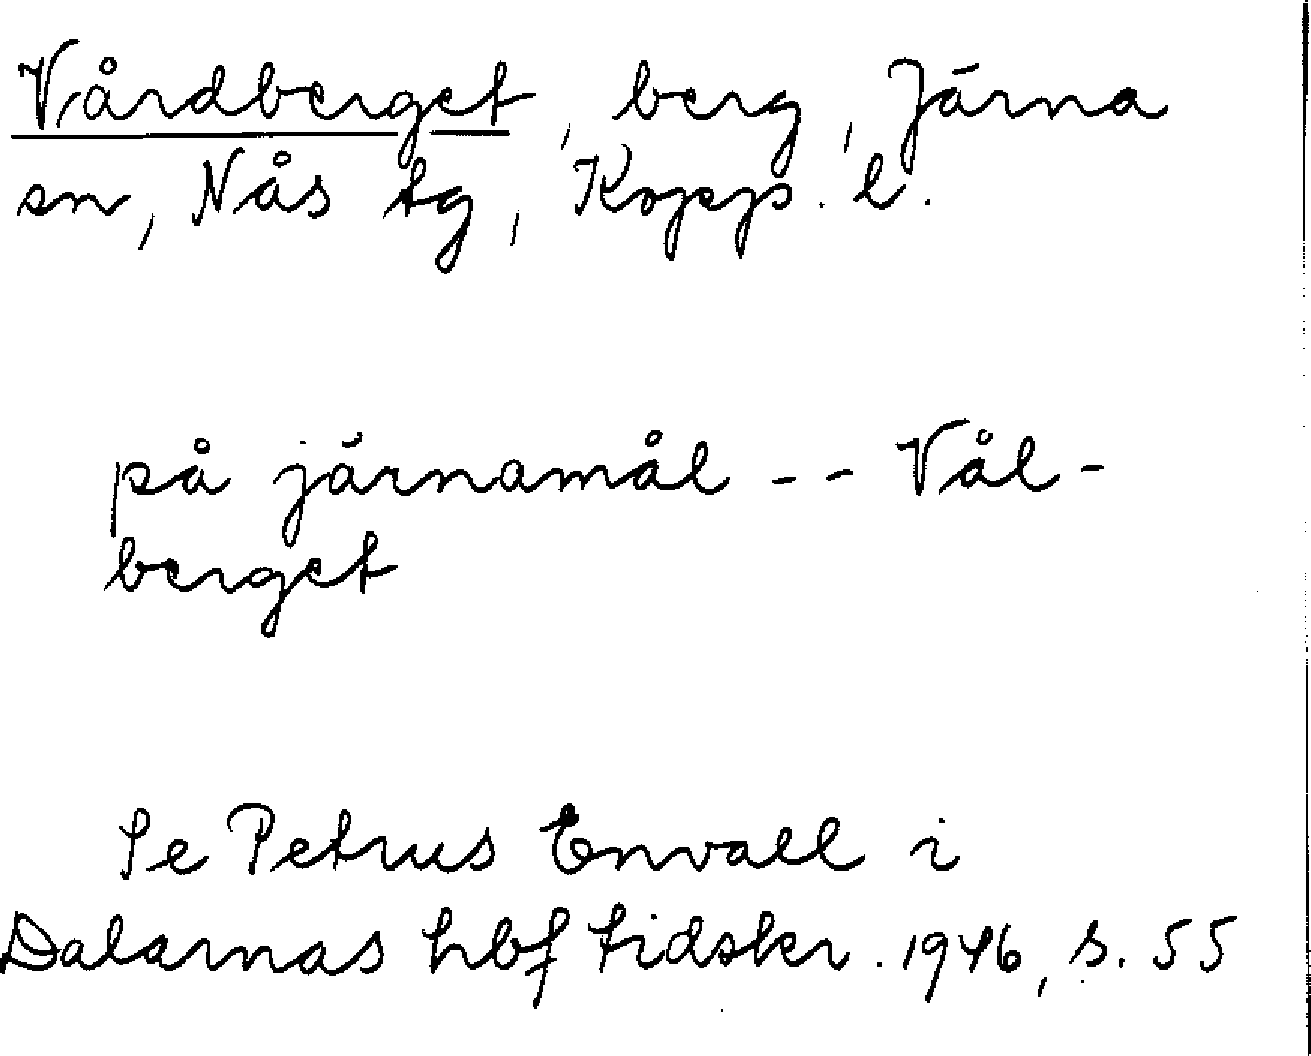 Vårdberget, berg, Järna
sn, Nås tg, Kopp. l.
på järnamål -- Vål-
berget
Se Petrus Envall i
Dalarnas hbf tidskr. 1946, s. 55